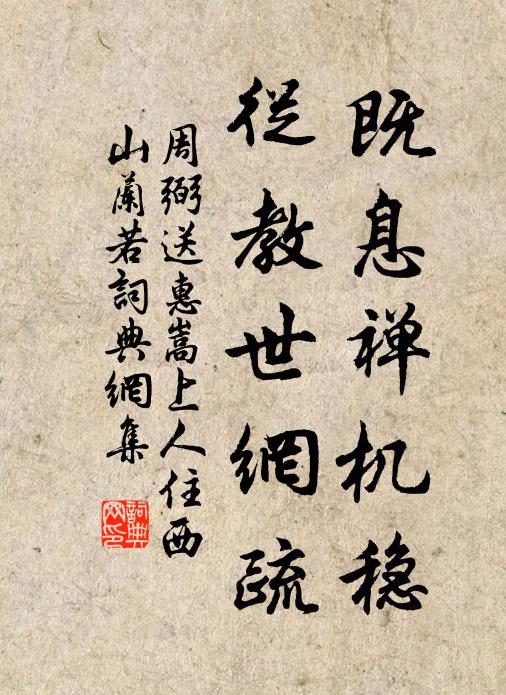 既息禅机稳
從教世網疏
周弼送惠嵩上人住西
山蘭若詞典網集
詞典網印